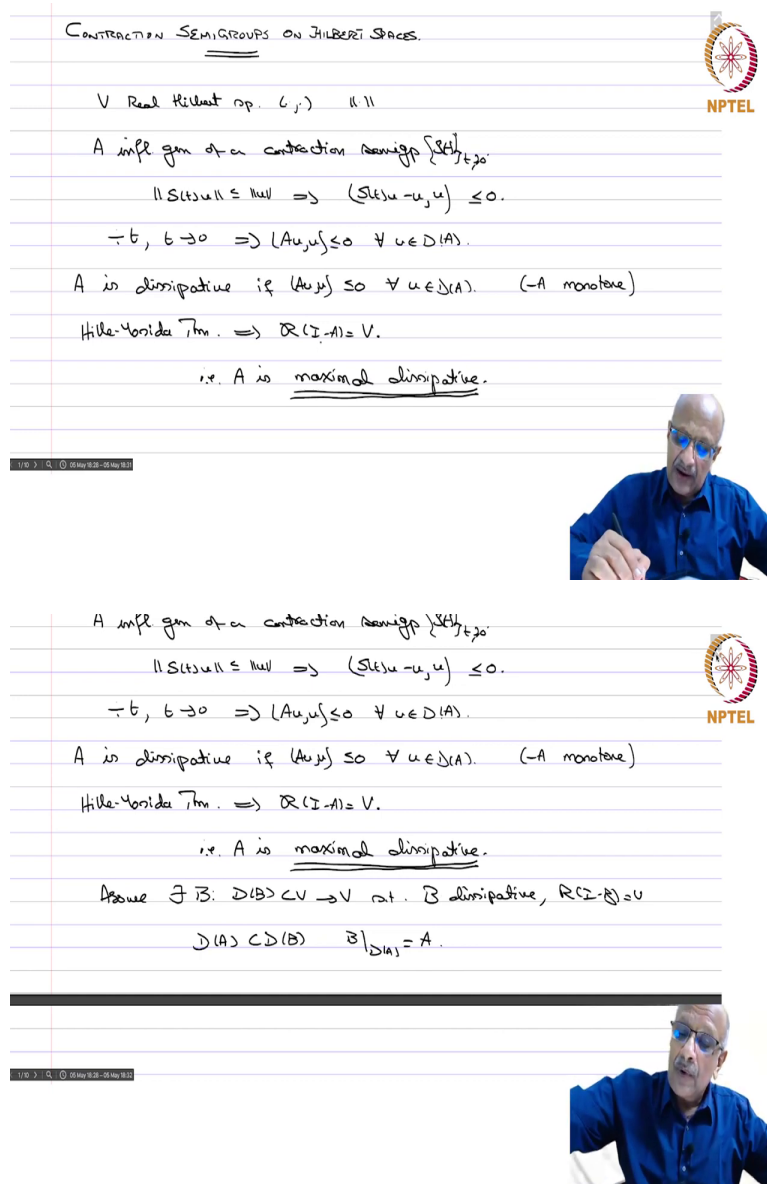 CONTRACTION SEMIGROUPS ON HILBERT SPACES.
V Real Hilbert sp. (·,·) ||·||
NPTEL
A infl gen of a contraction semigp {S(t)}_{t≥0}.
||S(t)u|| ≤ ||u|| ⇒ (S(t)u-u, u) ≤ 0.
÷t, t→0 ⇒ (Au,u) ≤ 0 ∀ u∈D(A).
A is dissipative if (Au,u) ≤ 0 ∀ u∈D(A). (-A monotone)
Hille-Yosida Thm. ⇒ R(I-A) = V.
i.e. A is maximal dissipative.
1/10 05 May 18:28 – 05 May 18:31
A infl gen of a contraction semigp {S(t)}_{t≥0}.
||S(t)u|| ≤ ||u|| ⇒ (S(t)u-u, u) ≤ 0.
÷t, t→0 ⇒ (Au,u) ≤ 0 ∀ u∈D(A).
NPTEL
A is dissipative if (Au,u) ≤ 0 ∀ u∈D(A). (-A monotone)
Hille-Yosida Thm. ⇒ R(I-A) = V.
i.e. A is maximal dissipative.
Assume ∃ B: D(B)⊂V → V s.t. B dissipative, R(I-B)=V
D(A) ⊂ D(B) B|_{D(A)} = A.
1/10 05 May 18:28 – 05 May 18:32